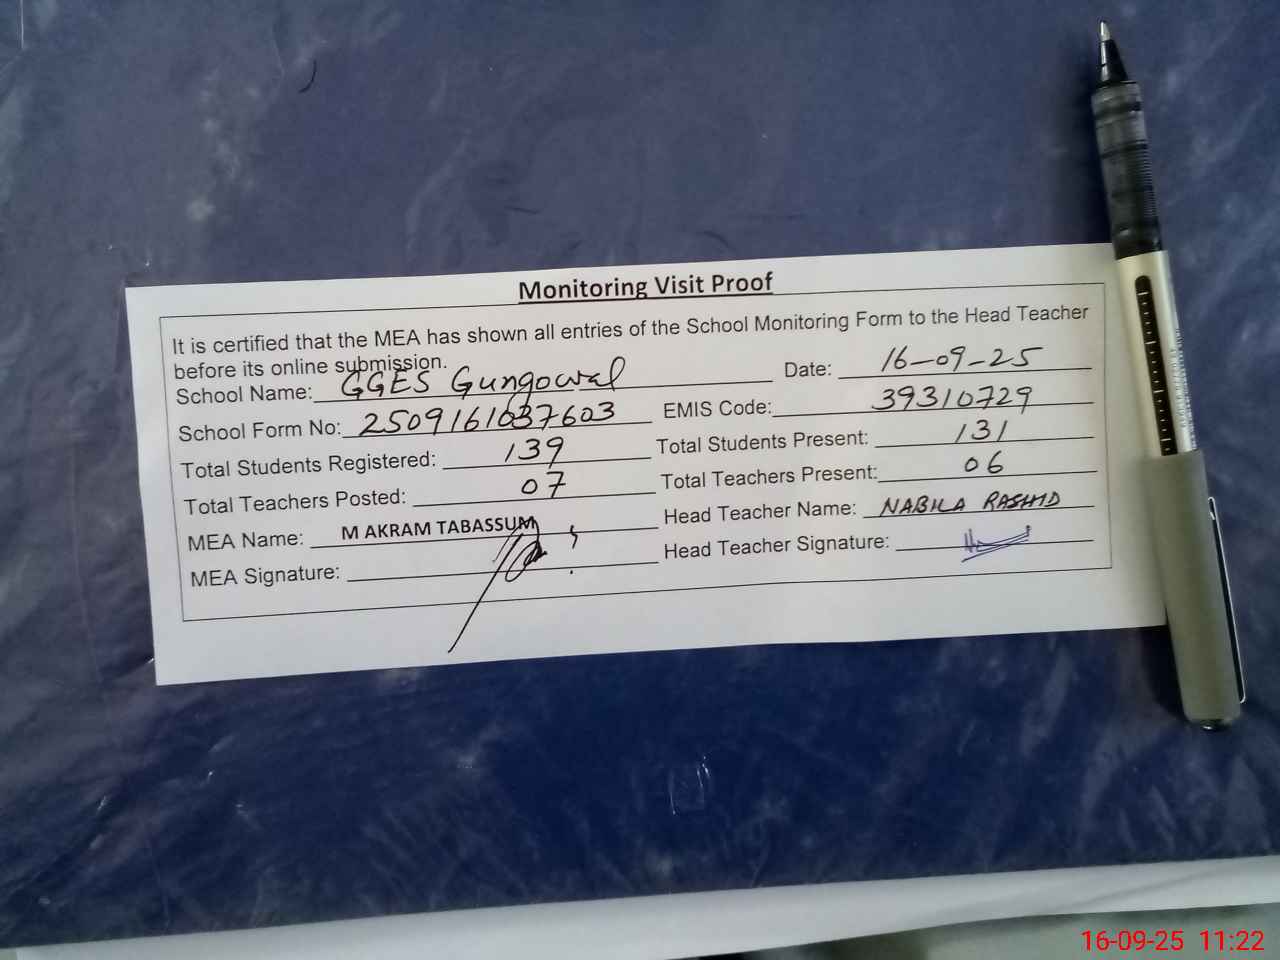 Monitoring Visit Proof
It is certified that the MEA has shown all entries of the School Monitoring Form to the Head Teacher
before its online submission.
School Name: GGES Gungowal Date: 16-09-25
School Form No: 2509161037603 EMIS Code: 39310729
Total Students Registered: 139 Total Students Present: 131
Total Teachers Posted: 07 Total Teachers Present: 06
MEA Name: M AKRAM TABASSUM Head Teacher Name: NABILA RASHID
MEA Signature: Head Teacher Signature:
16-09-25 11:22